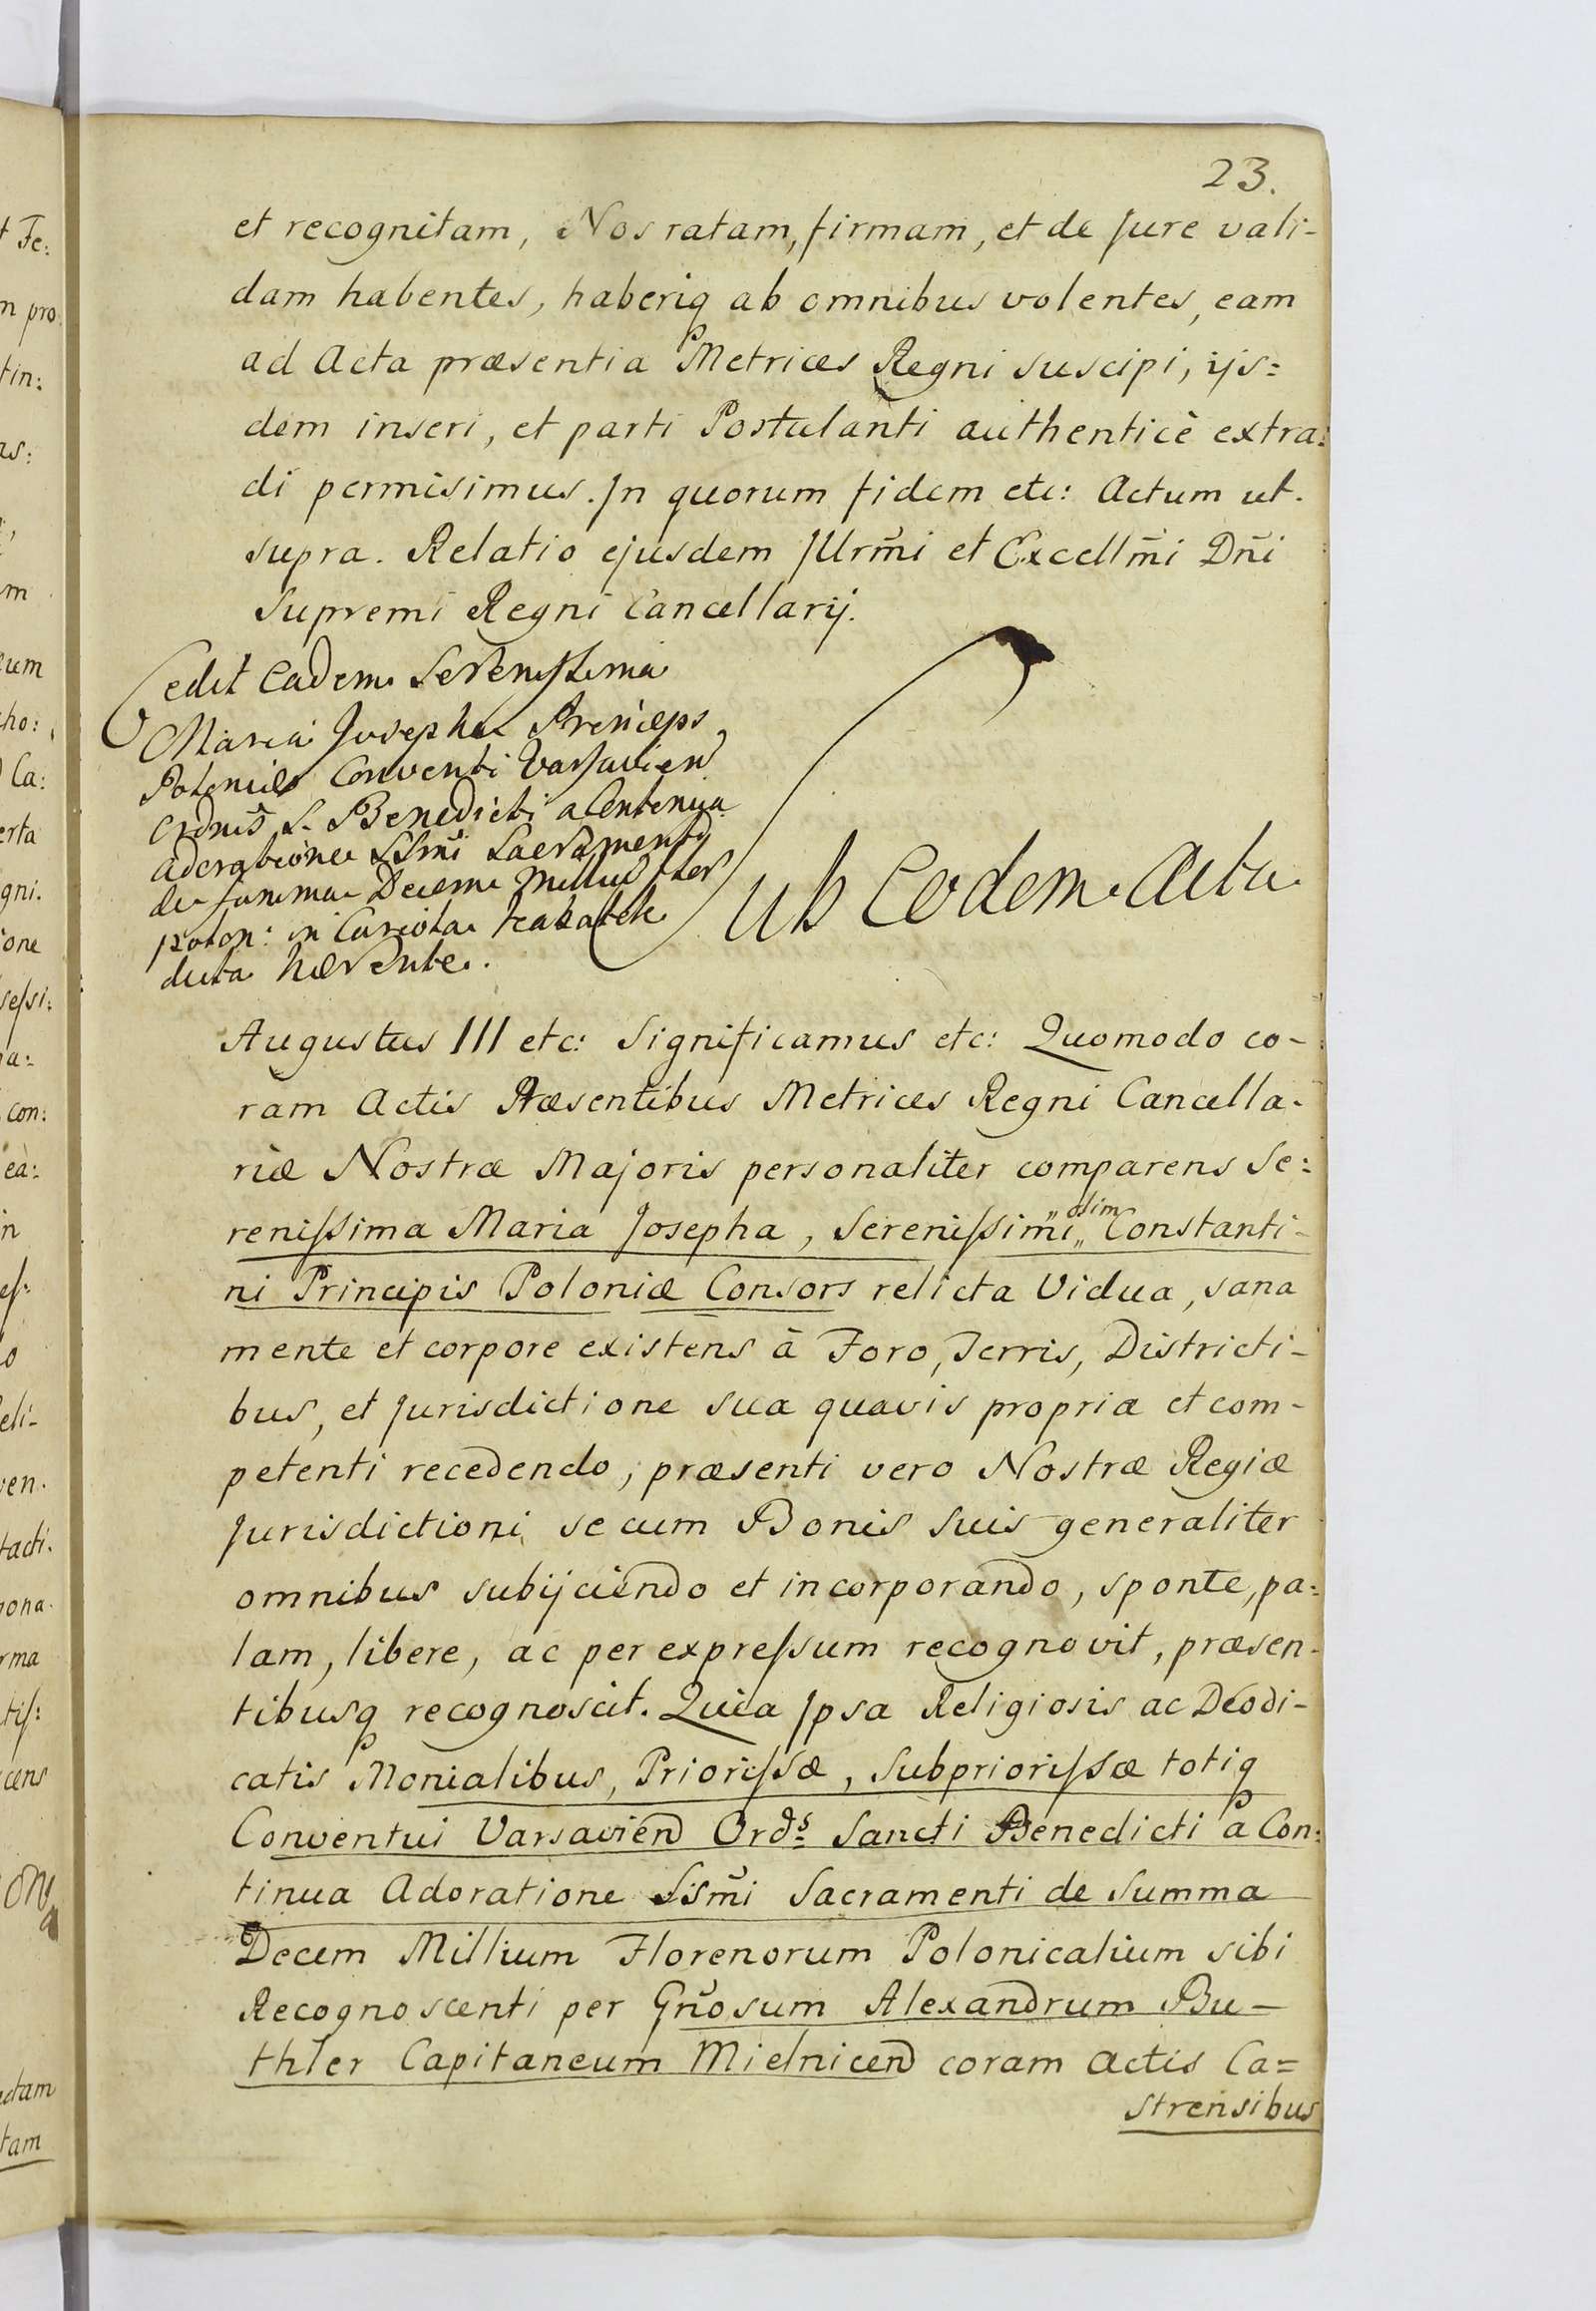 23.
et recognitam, Nos ratam, firmam, et de Jure vali-
dam habentes, haberiq ab omnibus volentes, eam
ad Acta præsentia Metrices Regni suscipi, ijs=
dem inseri, et parti Postulanti authenticè extra:
di permisimus. In quorum fidem etc: Actum ut.
supra. Relatio ejusdem Illrm̃i et Excellm̃i Dñi
Supremi Regni Cancellarij.
Cedit Eadem Serenissima
Maria Josepha Princeps
Conventi Varsavien
Ordnis S. Benedicti a Contenua
adoratione SSm̃i Sacramenti
de summa Decem Millium flor
polon: in
ducta hærente.
Ut Eodem Actu
Augustus III etc: Significamus etc: Quomodo co-
ram Actis Præsentibus Metrices Regni Cancella-
riæ Nostræ Majoris personaliter comparens Se:
renissima Maria Josepha, Serenissim̃i „olim„ Constanti-
ni Principis Poloniæ Consors relicta Vidua, sana
mente et corpore existens à Foro, Terris, Districti-
bus, et Jurisdictione sua quavis propria et com-
petenti recedendo, præsenti vero Nostræ Regiæ
Jurisdictioni se cum Bonis suis generaliter
omnibus subijciendo et incorporando, sponte, pa:
lam, libere, ac per expressum recognovit, præsen-
tibusq recognoscit. Quia Ipsa Religiosis ac Deodi-
catis Monialibus, Priorissæ, Subpriorissæ totiq
Conventui Varsavien Ordˢ Sancti Benedicti à Con:
tinua Adoratione SSm̃i Sacramenti de Summa
Decem Millium Florenorum Polonicalium sibi
Recognoscenti per Gñosum Alexandrum Bu-
thler Capitaneum Mielnicen coram Actis Ca=
strensibus